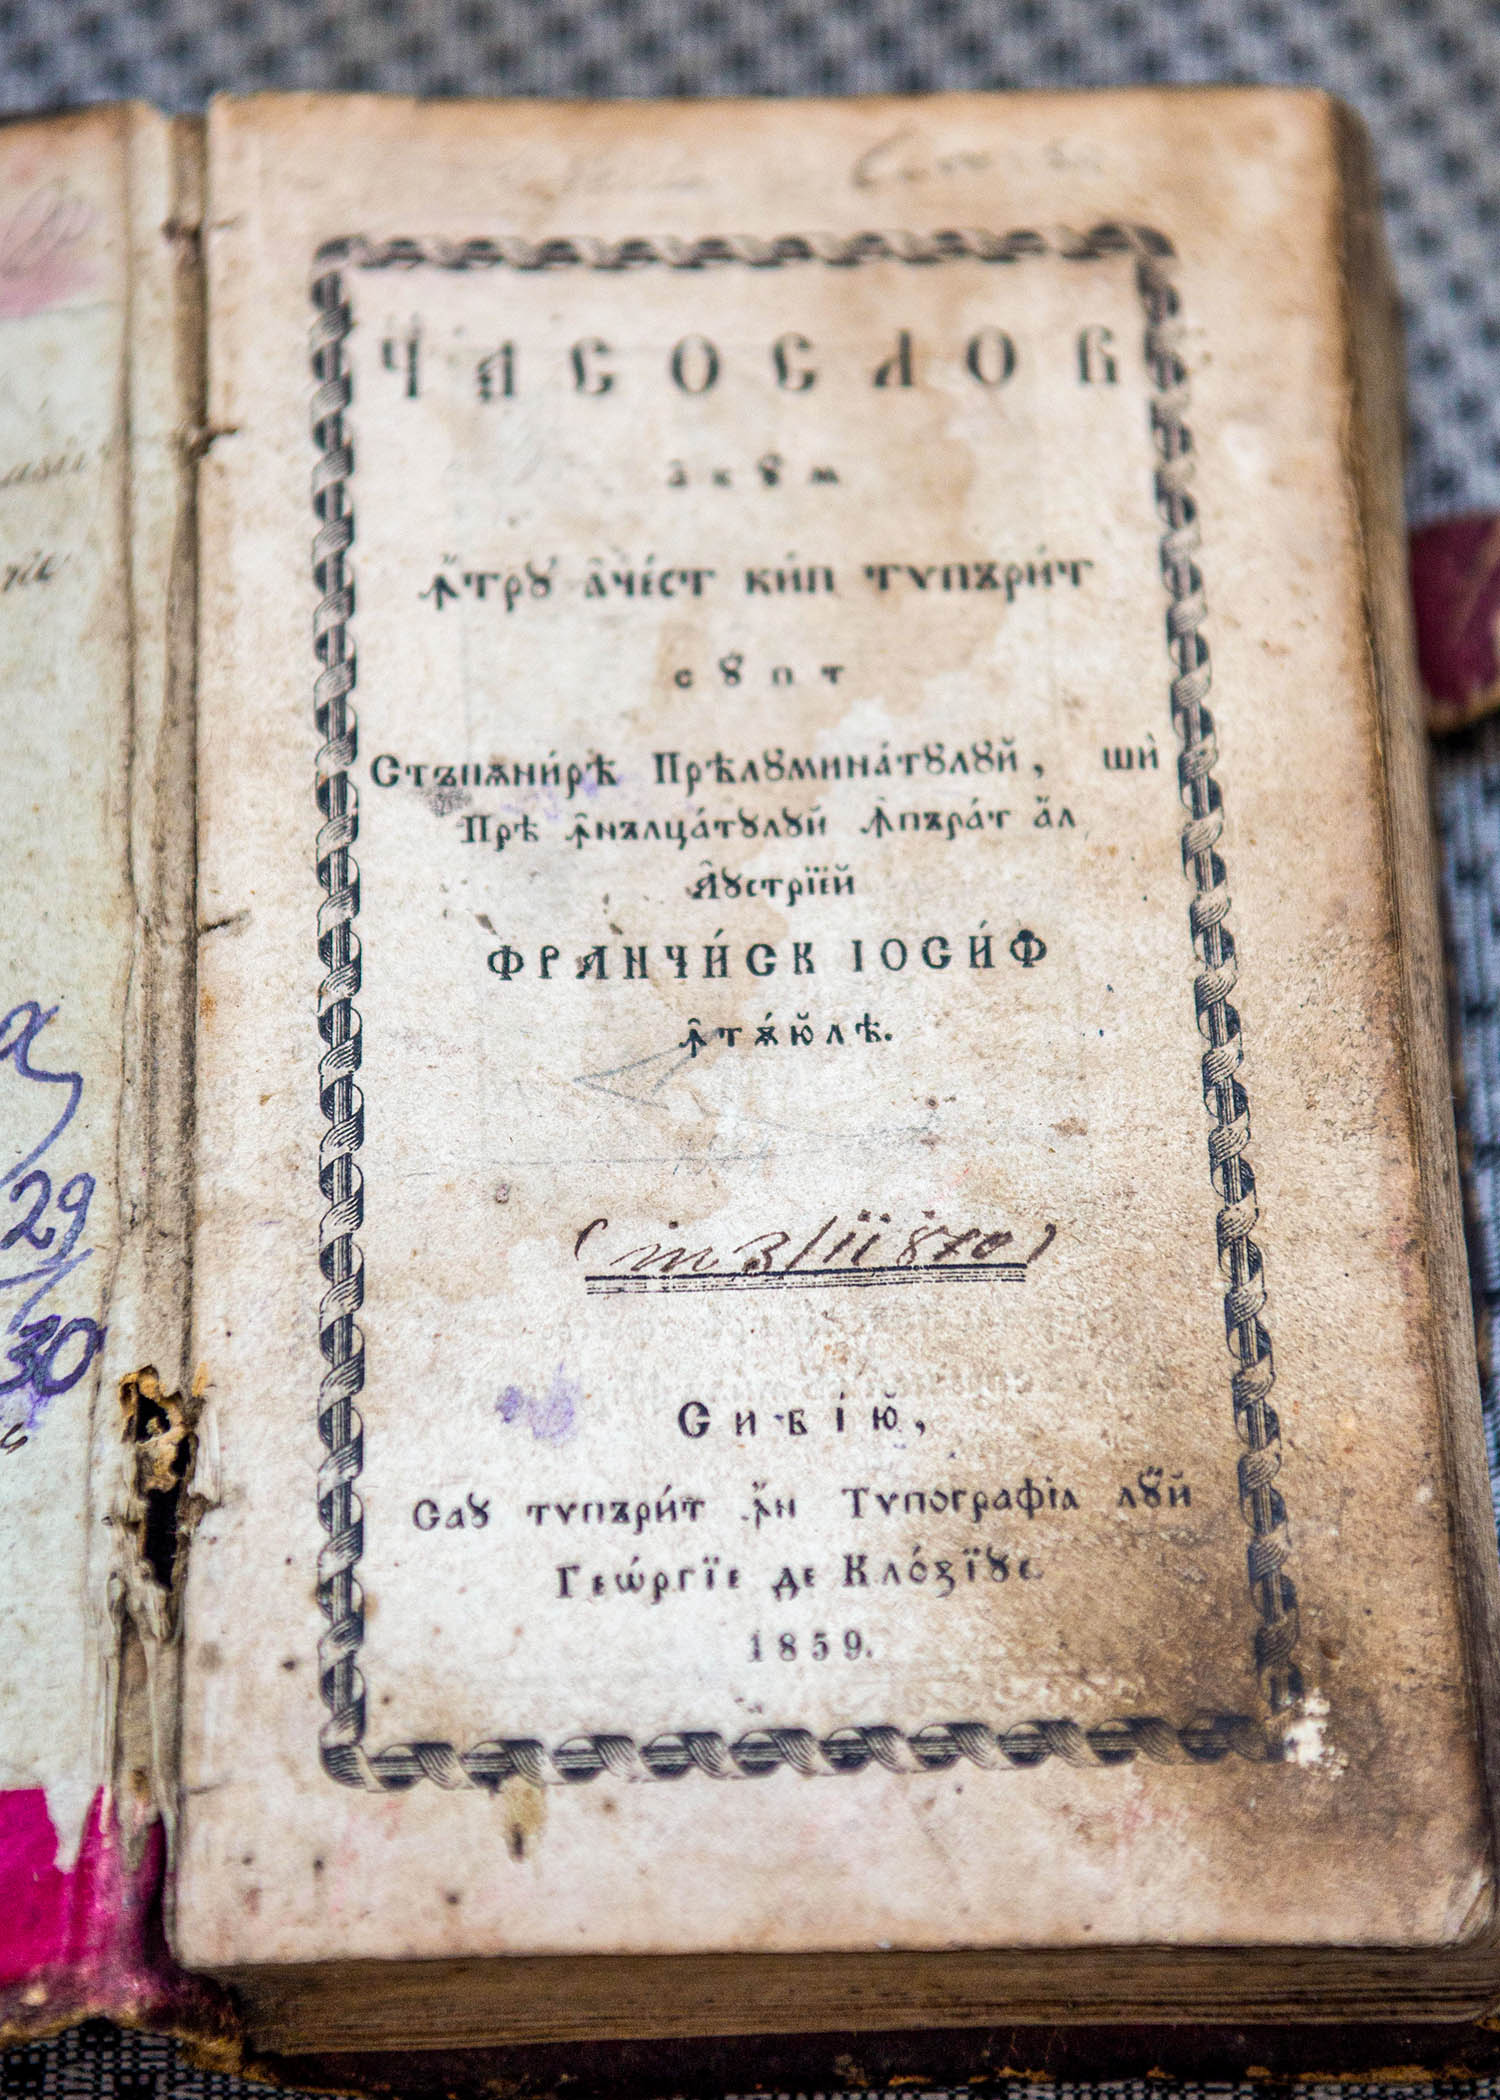 ЧАСОСЛОВ
акꙋм
ꙟ҆трꙋ́ а҆че́ст ки́п тѵпъри́т
сꙋ́пт
Стъпѫни́рѣ Прѣлꙋмина́тꙋлꙋй, шѝ
Прѣ ꙟ҆нълца́тꙋлꙋй ꙟ҆пъра́т а҆́л
А҆ꙋстрїе́й
ФРАНЧИ́СК ІОСИ́Ф
ꙟ҆тѫ́юлѣ.
(m 3/II 870)
Сибїю,
Саꙋ тѵпъри́т ꙟ҆́н Тѵпографі́а лꙋ́й
Геѡ́ргїе де Кло́зїꙋс
1859.
29
30